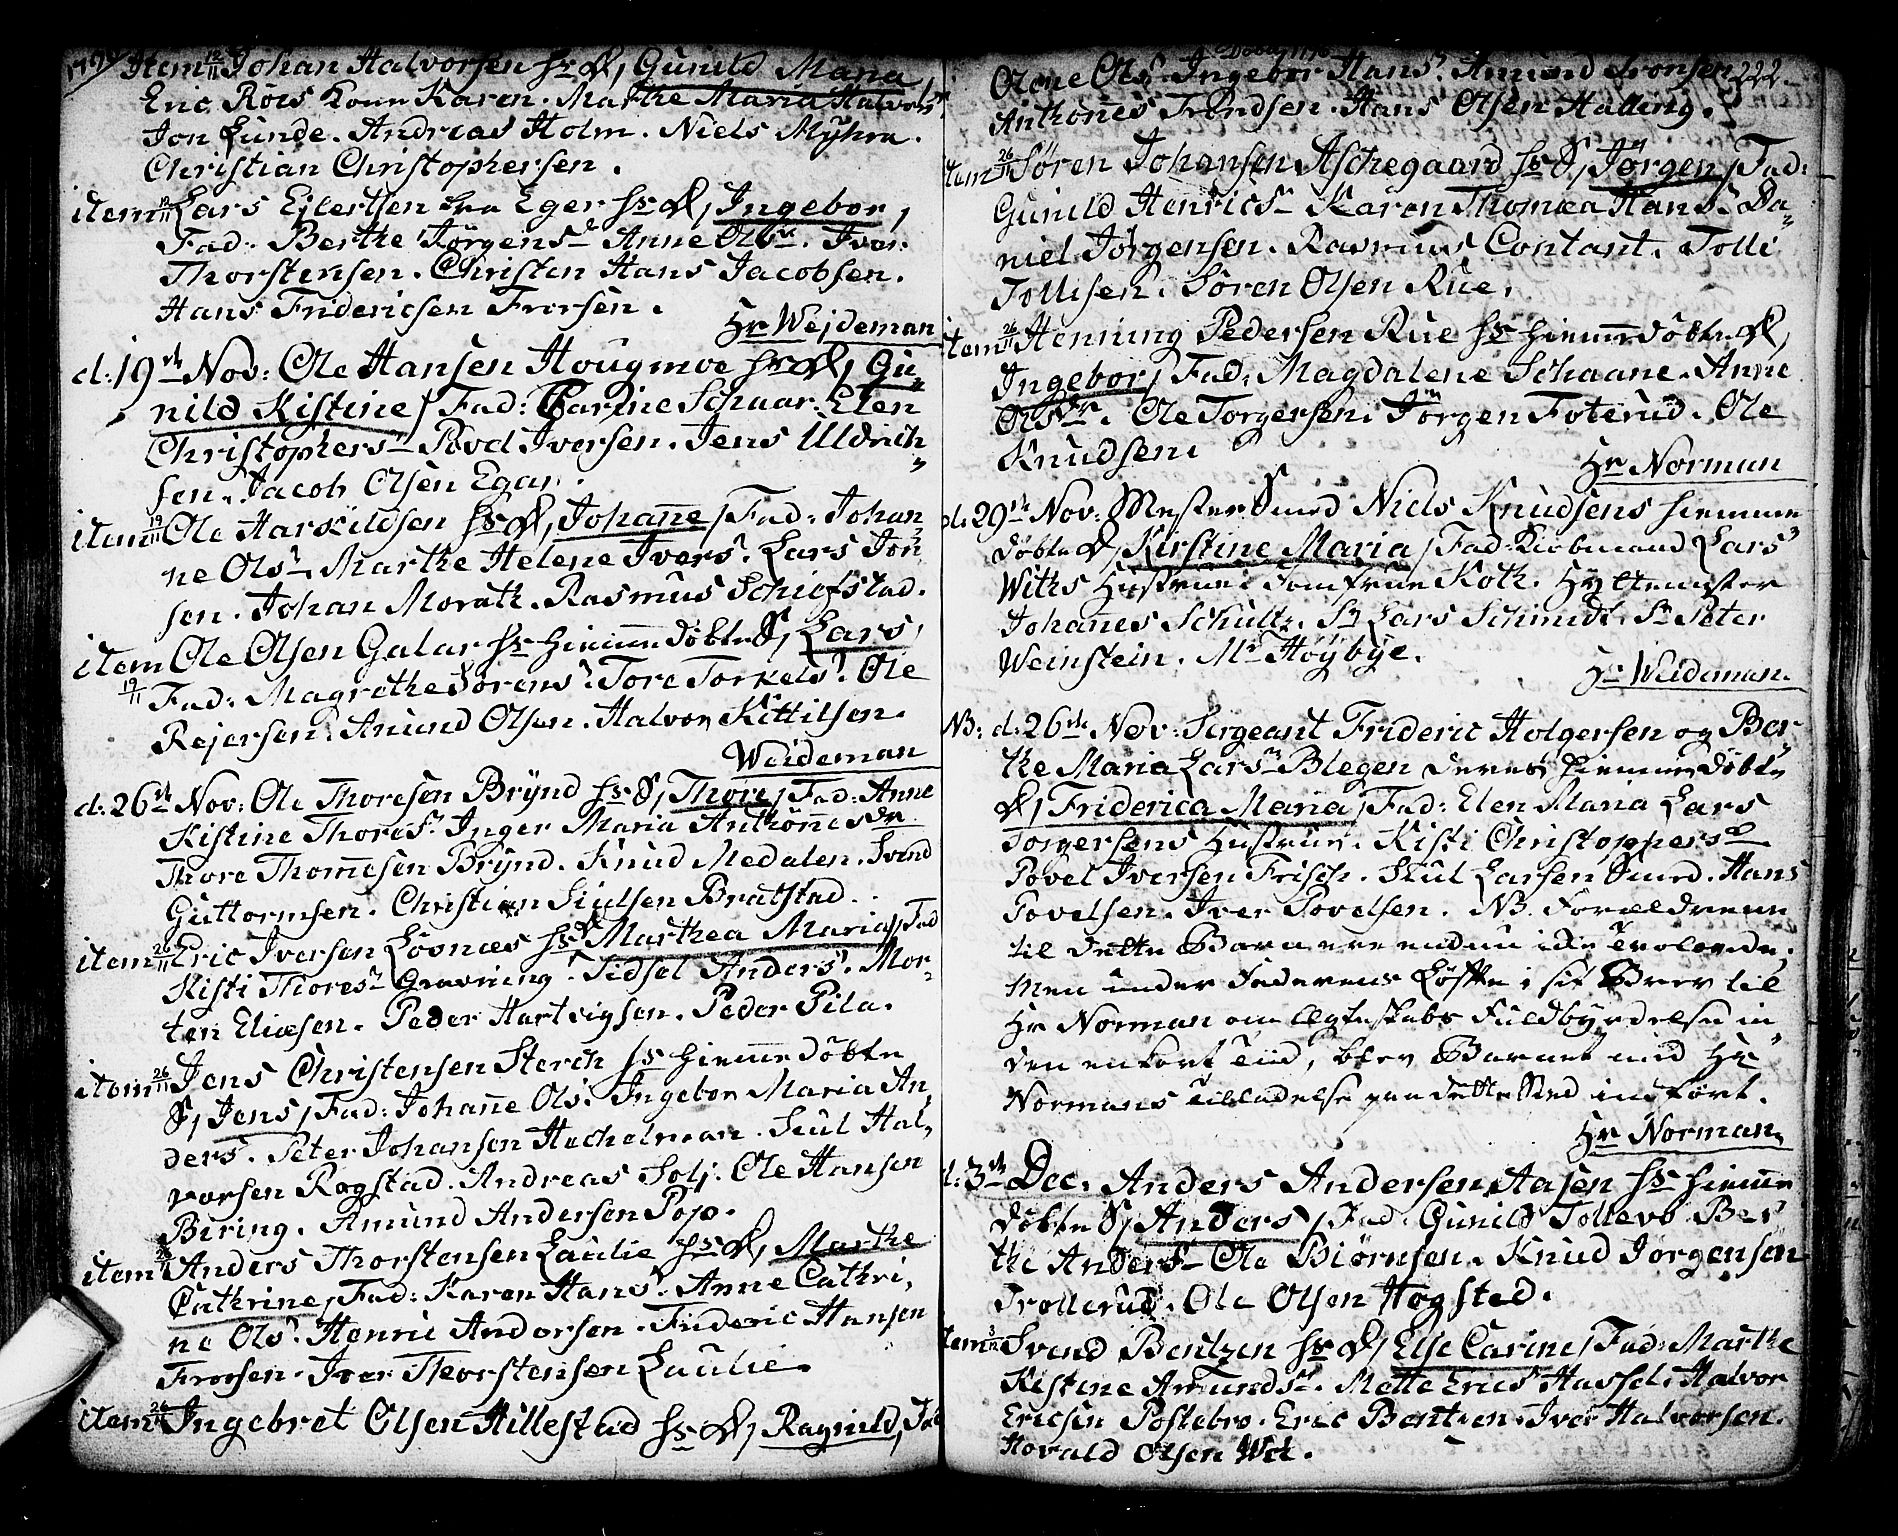 Item 12/11 Johan Halvorsen Hs D, Gunild Maria,
Eric Röes Kone Karen. Marthe Maria Halvors.
Jon Lunde. Andreas Holm. Niels Myhra.
Christian Christophersen.
item 12/11 Lars Ejlertsen fra Eger Hs D, Ingebor,
Fad: Berthe Jörgens. Anne Ols. Iver
Thorstensen. Christen Hans Jacobsen.
Hans Fridericsen Frorsen.
Hr Wejdeman
d: 19de Nov: Ole Hansen Hougmoe Hs D, Gu„
nild Kistine/ Fad: Carine Schaar. Elen
Christophers. Povel Iversen. Jens Uldrich„
sen. Jacob Olsen Egar.
item 19/11 Ole Harskildsen Hs D, Johanne/ Fad: Johan
ne Ols. Marthe Helene Ivers. Lars Jon
sen. Johan Morath. Rasmus Schiefstad.
item 19/11 Ole Olsen Galar Hs hiemmedöbte S, Lars,
Fad: Magrethe Sörens. Tore Torkels. Ole
Rejersen. Anund Olsen. Halvor Kittilsen.
Weideman
d: 26de Nov: Ole Thoresen Brÿnd Hs S, Thore/ Fad: Anne
Kistine Thores. Inger Maria Anthonnesdr.
Thore Thommesen Brÿnd. Knud Medalen. Svend
Guttormsen. Christian Siulsen Bratstad.
item 26/11 Eric Iversen Lösnæs Hs D Marthea Maria, Fad
Kisti Thores. Gravning. Sidsel Anders. Mor„
ten Eliæsen. Peder Hartvigsen. Peder Pila.
item 26/11 Jens Christensen Sterch Hs hiemmedöbte
S, Jens/ Fad: Johanne Ols. Ingebor Maria An„
ders. Peter Johansen Hechelman. Siul Hal„
vorsen Rogstad. Andreas Solj. Ole Hansen
Biring. Amund Andersen Pop.
item Anders Thorstensen Laulie Hs D, Marthe
Cathrine/ Fad: Karen Hans. Anne Cathri„
ne Ols. Henric Andersen. Frideric Hansen
Frorsen. Iver Thorstensen Laulie.
item 26/11 Ingebret Olsen Hillestad Hs D, Ragnild,
222.
Olene Ols. Ingebor Hans. Amund Tronsen
Anthonnes Trondsen. Hans Olsen Halling.
item 26/11 Sören Johansen Aschegaard Hs S, Jörgen/ Fad:
Gunild Henrics. Karen Thomæa Hans. Da„
niel Jörgensen. Rasmus Contant. Tolli
Tollisen. Sören Olsen Rue.
item 26/11 Henning Pedersen Rue Hs hiemmedöbte D,
Ingebor/ Fad: Magdalene Schaane. Anne
Olsdr. Ole Torgersen. Jörgen Foterud. Ole
Knudsen.
Hr Norman
d: 29de Nov: Mester Smed Niels Knudsens hiemme
döbte D, Kirstine Maria/ Fad: Kiöbmand Lars
Withs Hustrue. Jomfrue Koth. Hyttemester
Johannes Schultz. Sr Lars Schmidt. Sr Peter
Weinstein. Mr Höÿbÿe.
Hr Weideman.
NB: d: 26de Nov: Sergeant Frideric Holgersen og Ber
the Maria Lars. Blegen deres hiemmedöbte
D, Friderica Maria/ Fad: Elen Maria Lars
Torgersens Hustrue. Kisti Christoppers.
Povel Iversen Frisch. Siul Larsen Smed. Hans
Povelsen. Iver Povelsen. NB. Forældrene
til dette Barn ere endnu ide Trolovede,
Men under Faderens Löfte i sit Brev til
Hr Norman om Egteskabs Fuldbyrdelse in„
den en kort Tiid, blev Barnet med Hr
Normans Tilladelse paa dette Sted indfört.
Hr Norman.
d: 3de Dec. Anders Andersen Aasen Hs hiemme
döbte S, Anders/ Fad: Gunild Tollevs. Ber
the Anders. Ole Biörnsen. Knud Jörgensen
Trollerud. Ole Olsen Hogsted.
item 3/12 Svend Bentzen Hs D, Else Carine/ Fad: Marthe
Kistine Amunds. Mette Erics Hassel. Halvor
Ericsen Postebro. Eric Bentzen. Iver Halvorsen.
Horald Olsen Wel.